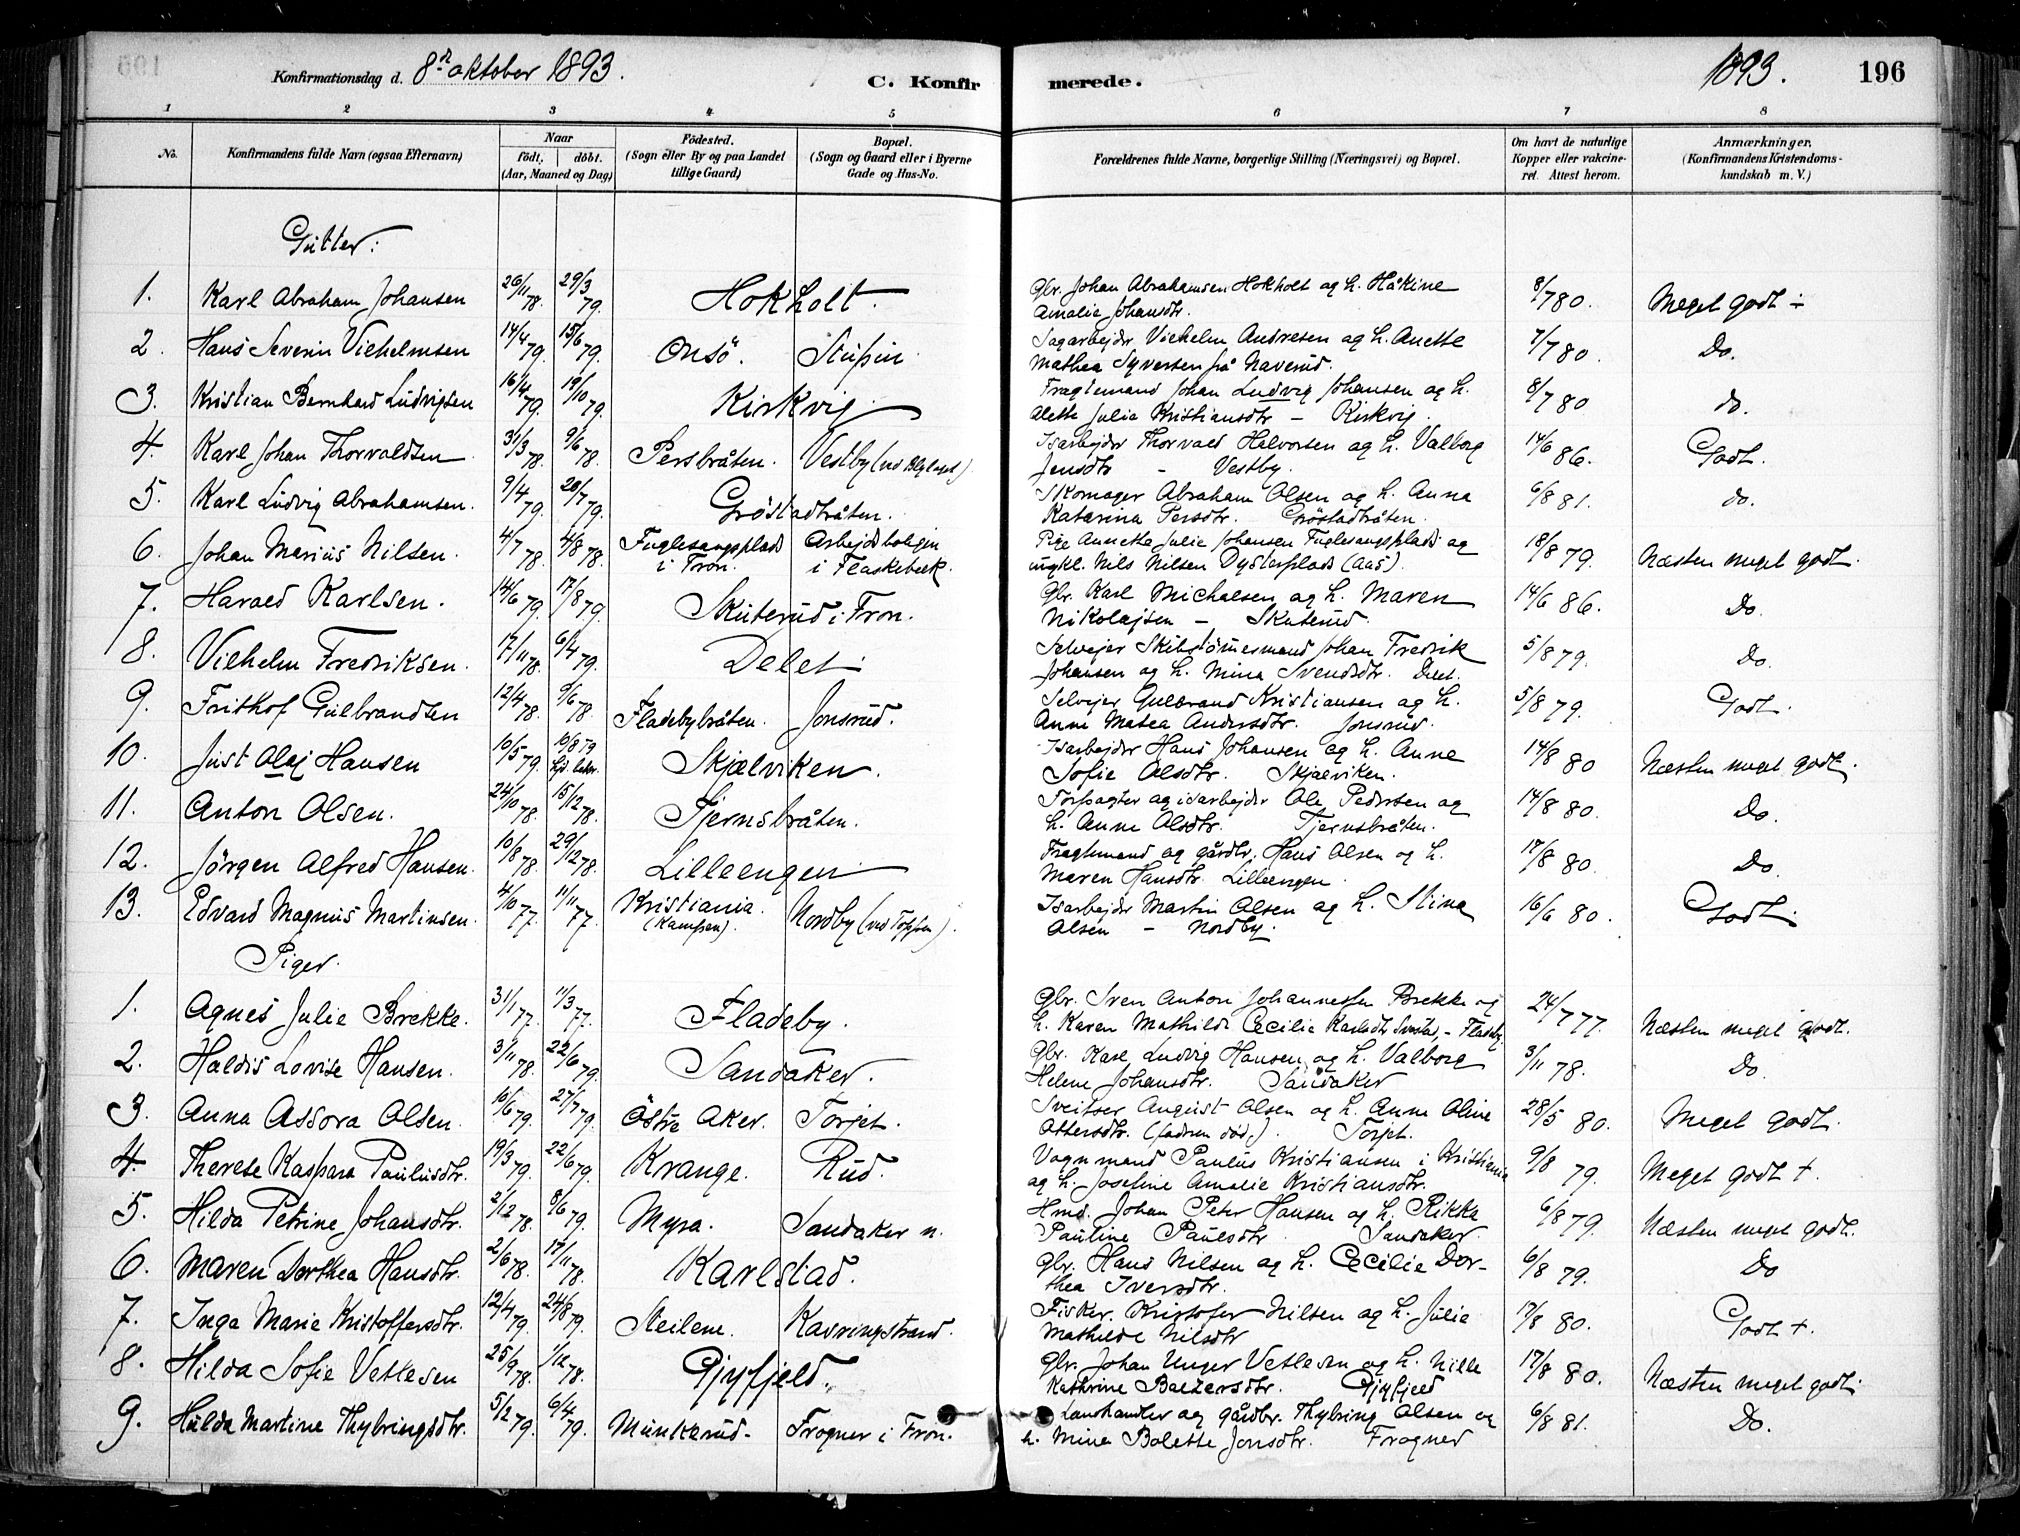 Konfirmationsdag d. 8de oktober 1893. C. Konfirmerede. 1893. 196
1 2 3 4 5 6 7 8
No. Konfirmandens fulde Navn (ogsaa Efternavn) Naar født, døbt. (Aar, Maaned og Dag) Fødested. (Sogn eller By og paa Landet tillige Gaard) Bopæl. (Sogn og Gaard eller i Byerne Gade og Hus-No. Forældrenes fulde Navne, borgerlige Stilling (Næringsvei) og Bopæl. Om havt de naturlige Kopper eller vakcineret. Attest herom. Anmærkninger. (Konfirmandens Kristendomskundskab m. V.)
Gutter:
1. Karl Abraham Johansen 26/11 78. 29/3 79. Hokholt. Gbr. Johan Abrahamsen Hokholt og h. Håkine Amalie Johansdtr. 8/7 80. Meget godt ÷
2. Hans Severin Vilhelmsen 14/4 79. 15/6 79. Onsö. Sagarbejdr Vilhelm Andresen og h. Anette Mathea Syversen på Naverud. 7/7 80. Do.
3. Kristian Bernhard Ludvigsen 16/4 79. 19/10 79. Kirkvig Fragtemand Johan Ludvig Johansen og h. Alette Julia Kristiansdtr – Kirkvig. 8/7 80 do.
4. Karl Johan Thorvaldsen 31/3 78. 9/6 78. Persbråten. Vestby Isarbejdr Thorvald Halvorsen og h. Valborg Jensdtr – Vestby. 14/6 86. Godt.
5. Karl Ludvig Abrahamsen. 9/4 79. 20/7 79. Gröstadbråten. Skomager Abraham Olsen og h. Anna Katarina Persdtr. Gröstadbråten. 6/8 81. do.
6. Johan Marius Nilsen. 4/7 78. 4/8 78. Fuglesangsplads i Fron. Arbejdsboligen i Flaskebæk. Pige Annette Julie Johansen Fuglesangsplads og ungkl. Nils Nilsen Dysterplads (Aas). 18/8 79. Næsten meget godt.
7. Harald Karlsen. 14/6 79. 17/8 79. Skuterud i Fron. Gbr. Karl Michalsen og h. Maren Nikolajsen – Skuterud. 14/6 86. Do.
8. Vilhelm Fredriksen. 17/11 78. 6/4 79. Delet Selvejer Skibstömmermand Johan Fredrik Johansen og h. Mina Svendsdtr. Delet. 5/8 79. Do.
9. Frithof Gulbrandsen 12/4 78. 9/6 78. Fladebybråten. Jonsrud. Selvejer Gulbrand Kristiansen og h. Anne Matea Andersdtr. Jonsrud. 5/8 79. Godt.
10. Just Olaj Hansen 10/5 79. 10/8 79 Skjælviken. Isarbejdr Hans Johansen og h. Anne Sofie Olsdtr. Skjælviken. 14/8 80 Næsten meget godt.
11. Anton Olsen. 24/10 78. 15/12 78. Tjernsbråten. Forpagter og isarbejdr Ole Pedersen og h. Anne Olsdtr. Tjernsbråten. 14/8 80. Do.
12. Jörgen Alfred Hansen. 10/8 78. 29/12 78. Lilleengen Fragtmand og gårdbr. Hans Olsen og h. Maren Hansdtr. Lilleengen. 17/8 80. Do.
13. Edvard Magnus Martinsen. 4/10 77. 11/11 77. Kristiania. (Kampen). Nordby (ved Toppen). Isarbejdr Martin Olsen og h. Stina Olsen – Nordby. 16/6 80. Godt.
Piger.
1. Agnes Julie Brekke. 31/1 77. 11/3 77. Fladeby. Gbr. Sven Anton Johannessen Brekke og h. Karen Mathilde Cecilie – Fladeby. 24/7 77. Næsten meget godt.
2. Haldis Lovise Hansen. 3/11 78. 22/6 79. Sandaker. Gbr. Karl Ludvig Hansen og h. Valborg Helene Johansdtr. Sandaker 3/11 78. Do.
3. Anna Assora Olsen. 10/6 79. 27/7 79. Östre Aker. Torjet. Sveitser August Olsen og h. Anne Oline Ottersdtr. (fadren död). Torjet. 28/5 80. Meget godt.
4. Therese Kaspara Paulusdtr. 19/3 79. 22/6 79. Krange. Rud. Vognmand Paulus Kristiansen i Kristiania og h. Josefine Amalie Kristiansdtr. 9/8 79. Meget godt +
5. Hilda Petrine Johansdtr. 2/12 78. 8/6 79. Myra. Sandaker n. Hmd. Johan Peter Hansen og h. Rikka Pauline Paulsdtr Sandaker. 6/8 79. Næsten meget godt.
6. Maren Dorthea Hansdtr. 2/6 78. 17/11 78. Karlstad. Gbr. Hans Nilsen og h. Cecilie Dorthea Iversdtr. 6/8 79. Do
7. Inga Marie Kristoffersdtr. 12/4 79. 24/8 79. Steilene. Kavringstrand. Fisker. Kristofer Nilsen og h. Julie Mathilde Nilsdtr 17/8 80. Godt +.
8. Hilda Sofie Vetlesen 25/9 78. 1/12 78. Gjyfjeld. Gbr. Johan Unger Vetlesen og h. Nille Kathrine Baltzersdtr. Gjyfjeld 17/8 80. Næsten meget godt.
9. Hulda Martine Thybringsdtr. 5/2 79. 6/4 79. Munkerud. Frogner i Fron. Landhandler og gårdbr. Thybring Olsen og h. Mina Bolette Jonsdtr. Frogner 6/8 81. Do.